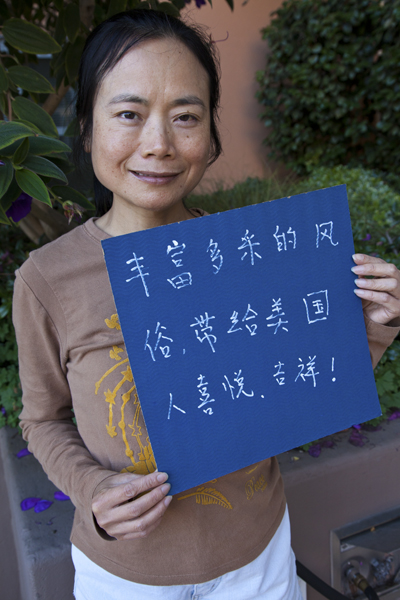 丰富多采的风
俗,带给美国
人喜悦、吉祥!